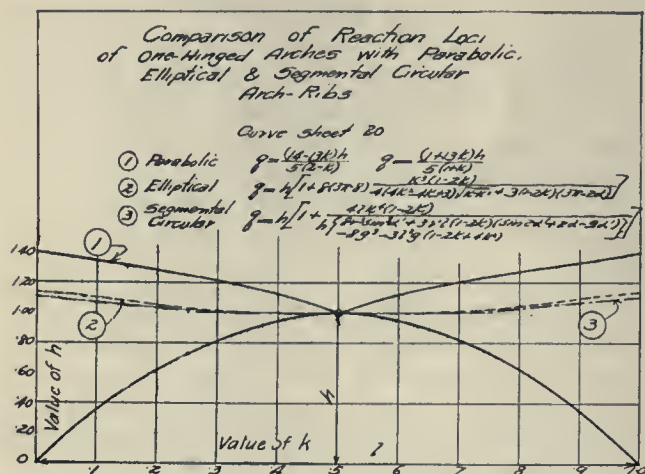 Comparison of Reaction Loci
of One-Hinged Arches with Parabolic,
Elliptical & Segmental Circular
Arch-Ribs
Curve sheet 20
① Parabolic q = (14-13k)h / 5(2-k) q = (1+13k)h / 5(1+k)
② Elliptical q = h[1 + 8(3π-8)
③ Segmental Circular q = h[1 +
1
1.40
1.20
1.00
.80
.60
.40
.20
0
2
3
Value of h
h
Value of k
l
.1 .2 .3 .4 .5 .6 .7 .8 .9 1.0